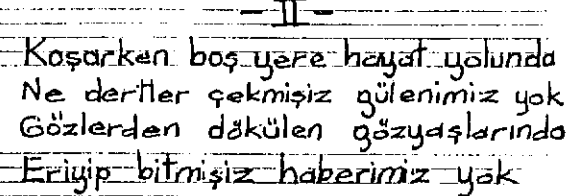 II
Koşarken boş yere hayat yolunda
Ne dertler çekmişiz gülenimiz yok
Gözlerden dökülen gözyaşlarında
Eriyip bitmişiz haberimiz yok